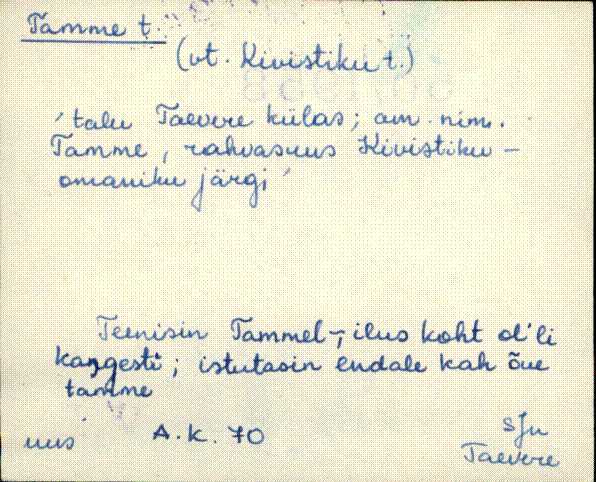 Tamme t.
(vt. Kivistiku t.)
'talu Taevere külas; am. nim.
Tamme, rahvasuus Kivistiku –
omaniku järgi'
Teenisin Tammel, ilus koht ol'li
kangesti; istutasin endale kah õue
tamme
uus A.K. 70 SJn
Taevere